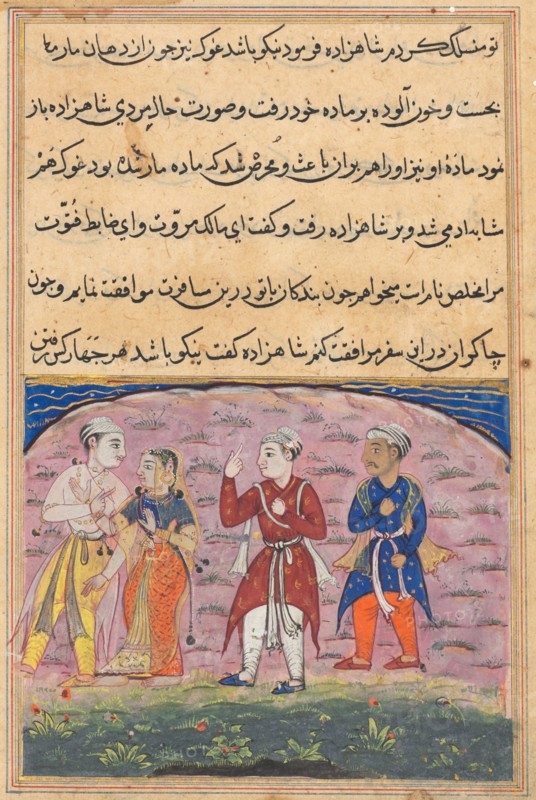 تو منسلک کردم شاهزاده فرمود نیکو باشد غوک نیز چون از دهان مار
بجست و خون آلوده بر ماده خود رفت و صورت حال مردی شاهزاده باز
نمود ماده او نیز او را هم بران باعث و محرض شد که ماده مار شده بود غوک هم
مشابه ادمی شد و بر شاهزاده رفت و کفت ای مالک مروّت و ای ضابط فُتوّت
مرا مخلص نام است میخواهم چون بندکان با تو درین مسافرت موافقت نمایم و چون
چاکران درین سفر مرافقت کنم شاهزاده کفت نیکو باشد هر چهار کس رفتن